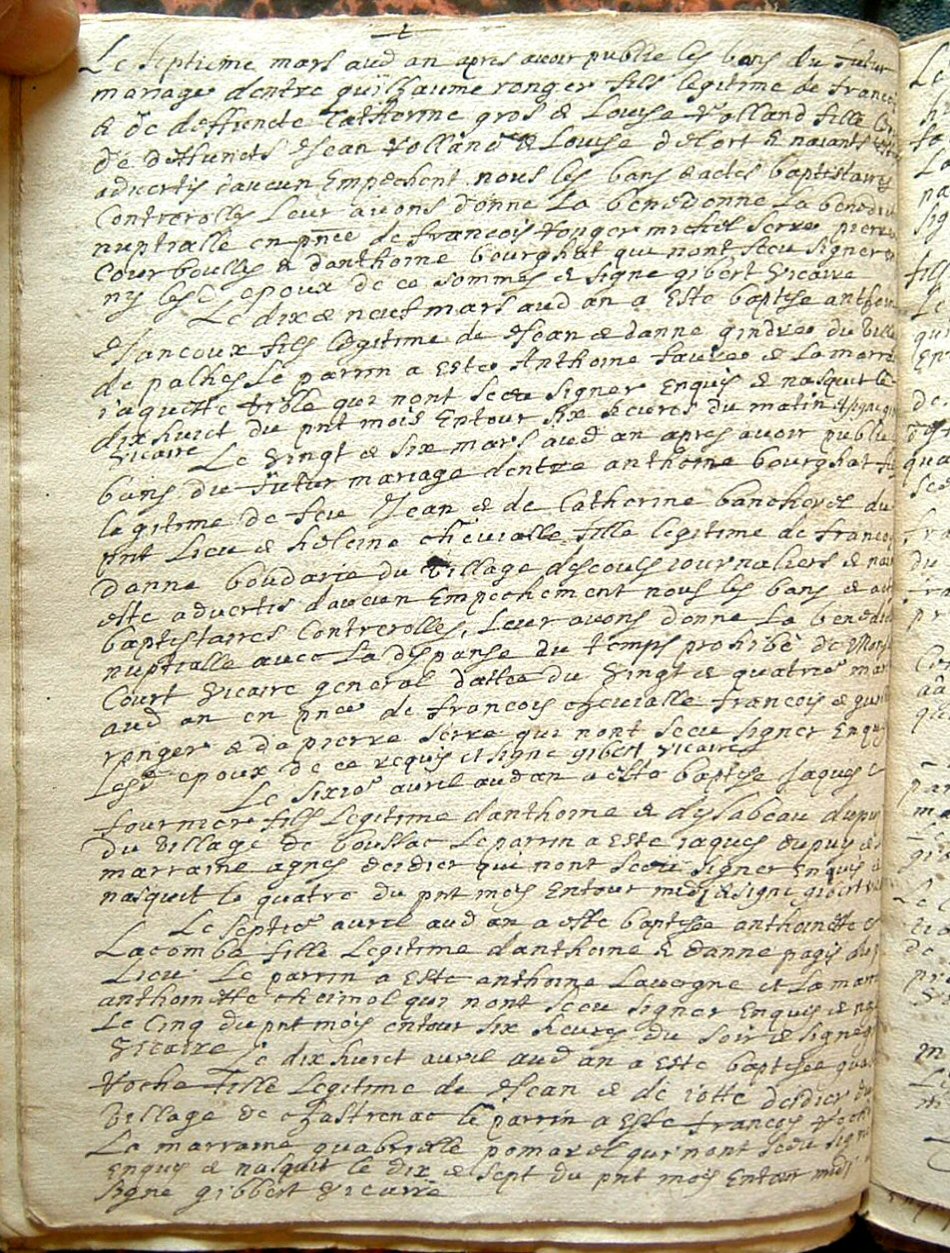 Le septieme mars aud an apres avoir publie les bans du futur
mariage dentre guilhaume ronger fils legitime de francois
& de deffuncte Catherine gros & Louise Volland fille
de deffuncts Jean Volland & Louise delort & nayants
advertis daucun Empechent nous les bans & actes baptistaires
Controrolles Leur avons donne La benedonne La benedict
nuptialle en pnce de francois ronger michel serre pierre
Courboulles & danthoine bourghat qui nont sceu signer
ny lesd epoux de ce sommes & signe gibert vicaire
Le dix & neuf mars aud an a Este baptise anthoine
Jancoux fils legitime de Jean & danne gindre du village
de palhes Le parrin a Este Anthoine faure & La marra
jaquette qui nont sceu signer Enquis & nasquit le
dix huict du pnt mois Entour six heures du matin & signe gi
vicaire Le vingt & six mars aud an apres avoir publie
bans du futur mariage dentre anthoine bourghat fils
legitime de feu Jean & de Catherine bancherel du
pnt Lieu & heleine cheivialle fille legitime de francois
danne boudarie du village descouls journaliers & nay
este advertis daucun Empechement nous les bans & act
baptistaires Controrolles, Leur avons donne La benedict
nuptialle avec La dispanse du temps prohibé de Mons
Court vicaire general dattee du vingt & quatrie mars
aud an en pnce de francois cheivialle francois & guil
ronger & de pierre serre qui nont sceu signer Enquis
Lesd epoux de ce requis et signe gibert vicaire
Le sixie avril aud an a este baptise Jaques
fournier fils Legitime danthoine & dysabeau dupuy
du village de boussac Le parrin a Este jaques dupuy & la
marraine agnes deidier qui nont sceu signer Enquis &
nasquit le quatre du pnt mois Entour midi & signe gibert vic
Le septie avril aud an a este baptisee anthoinette
Lacombe fille Legitime danthoine & danne pagis du p
Lieu Le parrin a Este anthoine Lavergne et La marra
anthoinette cheimol qui nont sceu signer Enquis & na
Le Cinq du pnt mois entour six heures du soir & signe gi
vicaire Le dix huict avril aud an a Este baptisee
roche fille Legitime de Jean & de deidier du
village de chastrenac le parrin a Este francois roche
La marraine guabrielle pomarel qui nont sceu signer
Enquis & nasquit le dix & sept du pnt mois Entour midi
signe gibbert vicaire